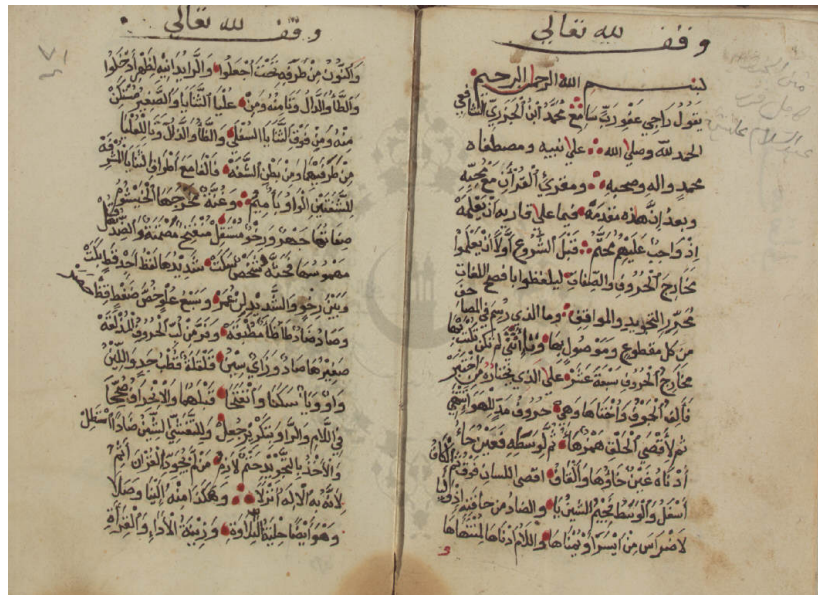 وقف لله تعالى
بسم الله الرحمن الرحيم
يقول راجي عفو رب سامع محمد ابن الجزري الشافعي
الحمد لله وصلي الله علي نبيه ومصطفاه
محمد واله وصحبه ومقرئ القرآن مع محبه
وبعد إن هذه مقدمه فيما علي قاريه أن يعلمه
إذ واجب عليهم محتم قبل الشروع أولا أن يعلموا
مخارج الحروف والصفات ليلفظوا بافصح اللغات
محرري التجويد والمواقف وما الذي رسم في المصاحف
من كل مقطوع وموصول بها وتا أنثى لم تكن تكتب بها
مخارج الحروف سبعة عشر علي الذي يختاره من اختبر
فألف الجوف وأختاها وهي حروف مد للهواء تنتهي
ثم لأقصى الحلق همز هاء ثم لوسطه فعين حاء
أدناه غين خاؤها والقاف اقصى اللسان فوق ثم الكاف
أسفل والوسط فجيم الشين يا والضاد من حافته إذ وليا
لاضراس من ايسر أو يمناها واللام ادناها لمنتهاها
وقف لله تعالى
٧١
والنون من طرفه تحت اجعلوا والرا يدانيه لظهر أدخلوا
والطا والدال وتا منه ومن عليا الثنايا والصفير مستكن
منه ومن فوق الثنايا السفلى والظا والذال وثا للعليا
من طرفيهما ومن بطن الشفه فالفا مع أطراف الثنايا المشرفه
للشفتين الواو باء ميم وغنة مخرجها الخيشوم
صفاتها جهر ورخو مستفل منفتح مصمتة والضد قل
مهموسها فحثه شخص سكت شديدها لفظ اجد قط بكت
وبين رخو والشديد لن عمر وسبع علو خص ضغط قظ حصر
وصاد ضاد طا ظا مطبقه وفر من لب الحروف المذلقه
صفيرها صاد وزاي سين قلقلة قطب جد واللين
واو ويا سكنا وانفتحا قبلهما والانحراف صححا
في اللام والرا وبتكرير جعل وللتفشي الشين ضادا استطل
والأخذ بالتجويد حتم لازم من لم يجود القران آثم
لأنه به الاله أنزلا وهكذا منه إلينا وصلا
وهو أيضا حلية التلاوة وزينة الأداء والقرأة